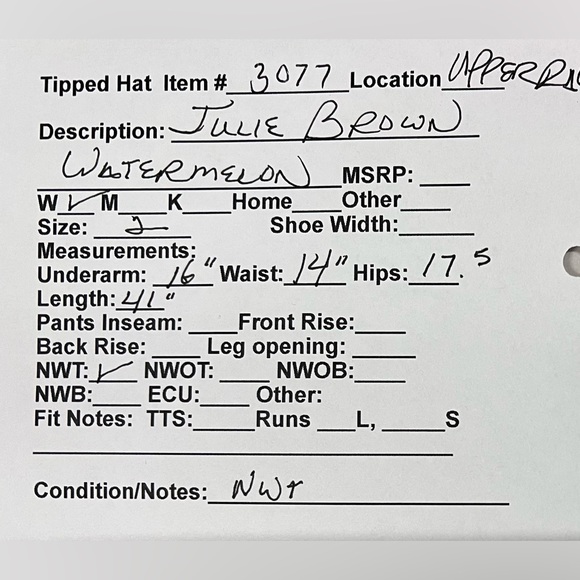 Tipped Hat Item # 3077 Location UPPER
Description: JULIE BROWN
WATERMELON MSRP: ____
W ✓ M____ K____ Home____ Other____
Size: 2 Shoe Width:____
Measurements:
Underarm: 16" Waist: 14" Hips: 17.5
Length: 41"
Pants Inseam: ____ Front Rise:____
Back Rise: ____ Leg opening: ____
NWT: ✓ NWOT: ____ NWOB:____
NWB:____ ECU:____ Other:
Fit Notes: TTS:____ Runs ___L, _____S
Condition/Notes: NWT